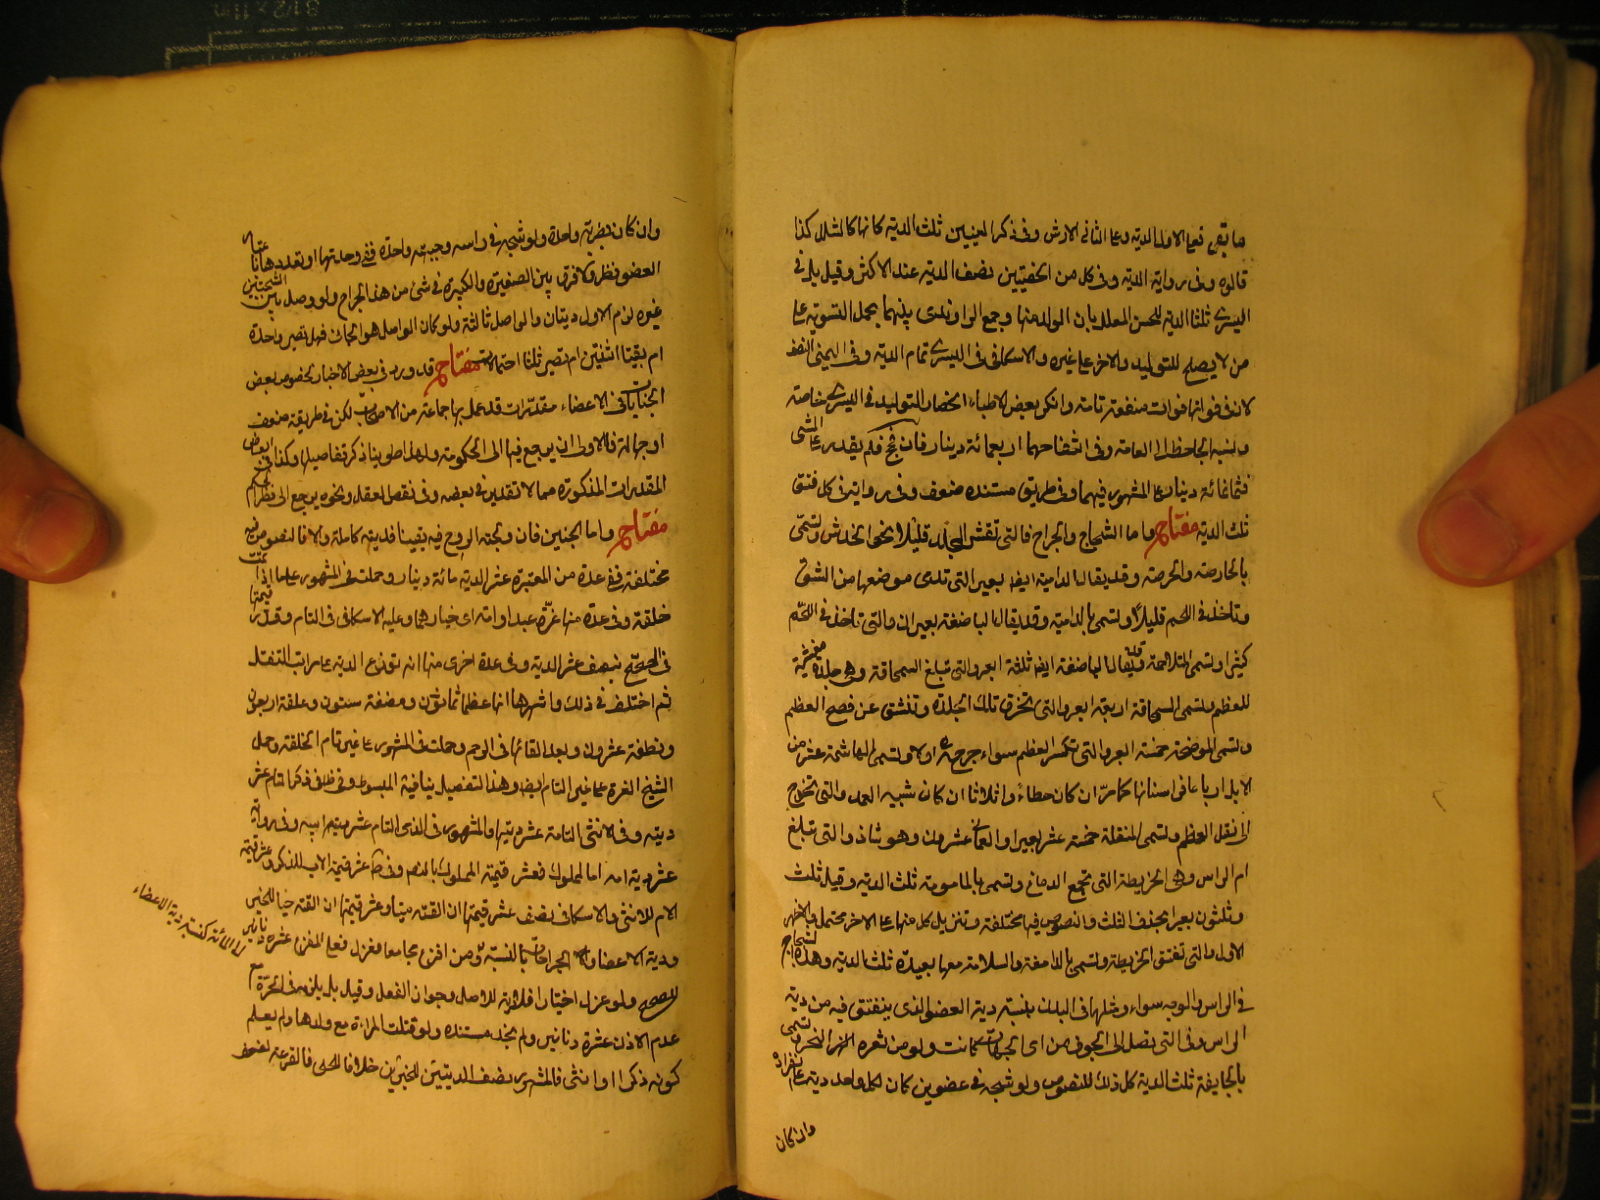 ما بقي فعلى الاول الدية وعلى الثاني الارش وفي ذكر العنين ثلث الدية كانها كالشلل كذا
قالوه وفي رواية الدية وفي كل من الخصيتين نصف الدية عند الاكثر وقيل بل في
اليسرى ثلثا الدية للحسن المعلل بان الولد منها وجمع الراوندي بينهما بحمل التسوية على
من لا يصلح للتوليد والاخر على غيره والاسكافي في اليسرى تمام الدية وفي اليمنى النصف
لان في فواتها فوات منفعة تامة وانكر بعض الاطباء انحصار التوليد في اليسرى خاصة
ونسبه الجاحظ الى العامة وفي انتفاخهما اربعمائة دينار فان فحج فلم يقدر على المشي
فثمانمائة دينار على المشهور فيهما وفي طريق مستنده ضعف وفي رواية في كل فتق
ثلث الدية مفتاح واما الشجاج والجراح فالتي تقشر الجلد قليلا نحو الخدش وتسمى
بالحارصة والحرصة وقد يقال الدامية ايضا بعير التي تدمى موضعها من الشق
وتاخذ في اللحم قليلا وتسمى بالدامية وقد يقال الباضعة بعيران والتي تاخذ في اللحم
كثيرا وتسمى المتلاحمة وقد يقال الباضعة ايضا ثلثة ابعر والتي تبلغ السمحاقة وهي جلدة مغشية
للعظم وتسمى السمحاقة اربعة ابعر والتي تخرق تلك الجلدة وتنشق عن فصح العظم
وتسمى الموضحة خمسة ابعر والتي تكسر العظم سواء جرحته اولا وتسمى الهاشمة عشر من
الابل ارباعا في اسنانها كما مر ان كان خطاء واثلاثا ان كان شبيه العمد والتي تحوج
الى نقل العظم وتسمى المنقلة خمسة عشر بعيرا والعماني عشرون وهو شاذ والتي تبلغ
ام الراس وهي الخريطة التي تجمع الدماغ وتسمى بالمامومة ثلث الدية وقيل ثلث
وثلثون بعيرا بحذف الثلث والنصوص فيه مختلفة وتنزيل كل منها على الاخر محتمل والاظهر
الاول والتي تفتق الخريطة وتسمى بالدامغة والسلامة معها بعيدة ثلث الدية وهذه الشجاج
في الراس والوجه سواء ومثلها في البدن بنسبة دية العضو الذي يتفق فيه من دية
الراس وفي التي تصل الى الجوف من اي الجهات كانت ولو من ثغرة النحر وتسمى
بالجايفة ثلث الدية كل ذلك للنصوص ولو شجه في عضوين كان لكل واحد دية على انفراده
وان كان
وان كان بضربة واحدة ولو شجه في راسه وجبهته واحدة ففي وحدتها او تعددها
العضو نظر ولا فرق بين الصغيرة والكبيرة في شئ من هذه الجراح ولو وصل بين الشجتين
غيره لزم الاول ديتان والواصل ثالثة ولو كان الواصل هو الجاني فهل تصير واحدة
ام بقيتا اثنتين ام تصير ثلثا احتمالات مفتاح قد ورد في بعض الاخبار لخصوص بعض
الجنايات في الاعضاء مقدرات قد عمل بها جماعة من الاصحاب لكن في طريقه ضعف
او جهالة فالاولى ان يرجع فيه الى الحكومة ولهذا طوينا ذكر تفاصيلها وكذا في ابعاض
المقدرات المذكورة مما لا تقدير في بعضه وفي نقص العقل ونحوه يرجع الى نظر الحاكم
مفتاح واما الجنين فان ولجته الروح فيه يقينا فديته كاملة والا فالنصوص فيه
مختلفة ففي عدة من المعتبرة عشر الدية مائة دينار وحملت في المشهور على ما اذا تمت
خلقته وفي عدة منها غرة عبد او امة اي خيارهما وعليه الاسكافي في التام وقدر قيمتها
في الصحيح بنصف عشر الدية وفي عدة اخرى منها انه توزع الدية على مراتب التنقل
ثم اختلف في ذلك واشهرها انها عظما ثمانون ومضغة ستون وعلقة اربعون
ونطفة عشرون وبعد القائها في الرحم وحملت في المشهور على غير تام الخلقة وحمل
الشيخ الغرة على غير التام ايضا وهذا التفصيل ينافيه المبسوط وفي خلاف ذكر التام عشر
ديته وفي الانثى التامة عشر ديتها والمشهور في الذمي التام عشر دية ابيه وفي رواية
عشر دية امه اما المملوك فعشر قيمة المملوك بالنص وفي ط عشر قيمة الاب للذكر وعشر قيمة
الام للانثى والاسكافي نصف عشر قيمتها ان القته ميتا وعشر قيمتها ان القته حيا للخبر
ودية الاعضاء والجراحات بالنسبة ومن افزع مجامعا فعزل فعلى المفزع عشرة دنانير
الى المائة كنسبة دية الاعضاء
للصحيح ولو عزل اختيارا فلا دية للاصل وجواز الفعل وقيل بل يلزمه في الحرة مع
عدم الاذن عشرة دنانير ولم نجد مستنده ولو قتلت المراة مع ولدها ولم يعلم
كونه ذكرا او انثى فالمشهور نصف الديتين للخبرين خلافا للحلي فالقرعة